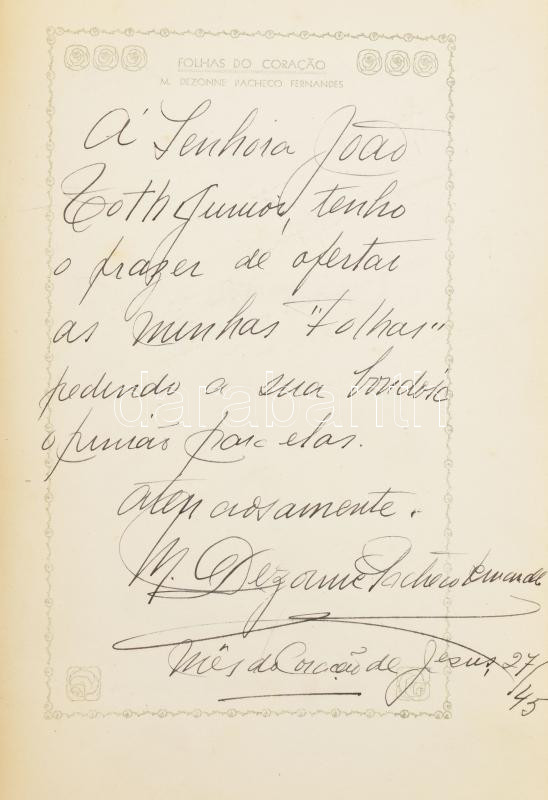 FOLHAS DO CORAÇÃO
M. DEZONNE PACHECO FERNANDES
Á Senhora João
Toth Junior, tenho
o prazer de ofertar
as minhas "Folhas"
pedindo a sua bondosa
opinião para elas.
Atenciosamente.
M. Dezonne Pacheco Fernandes
Mês do Coração de Jesus, 27/
45
darabanth